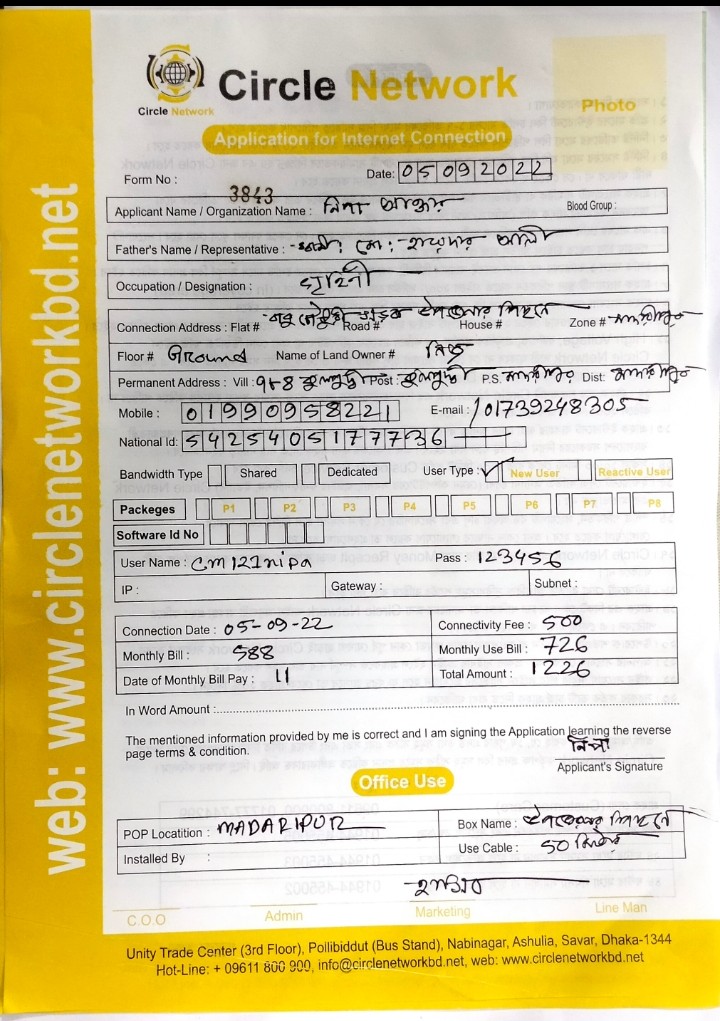 Circle Network
Circle Network
Photo
Application for Internet Connection
Form No : 3843 Date: 05092022
Applicant Name / Organization Name : নিপা আক্তার Blood Group :
Father's Name / Representative : স্বামী: মো: হায়দার আলী
Occupation / Designation : গৃহিনী
Connection Address : Flat # Road # House # Zone # মাদারীপুর
Floor # Ground Name of Land Owner # নিজ
Permanent Address : Vill : Post : P.S. মাদারীপুর Dist: মাদারীপুর
Mobile : 01990958221 E-mail : /01739248305
National Id: 5425405177736
Bandwidth Type Shared Dedicated User Type : ✓ New User Reactive User
Packeges P1 P2 P3 P4 P5 P6 P7 P8
Software Id No
User Name : CM121nipa Pass : 123456
IP : Gateway : Subnet :
Connection Date : 05-09-22 Connectivity Fee : 500
Monthly Bill : 588 Monthly Use Bill : 726
Date of Monthly Bill Pay : 11 Total Amount : 1226
In Word Amount :
The mentioned information provided by me is correct and I am signing the Application learning the reverse
page terms & condition.
নিপা
Applicant's Signature
Office Use
POP Locatition : MADARIPUR Box Name : পিছনে
Installed By : Use Cable : 50 মিটার
C.O.O Admin Marketing Line Man
Unity Trade Center (3rd Floor), Pollibiddut (Bus Stand), Nabinagar, Ashulia, Savar, Dhaka-1344
Hot-Line: + 09611 800 900, info@circlenetworkbd.net, web: www.circlenetworkbd.net
web: www.circlenetworkbd.net